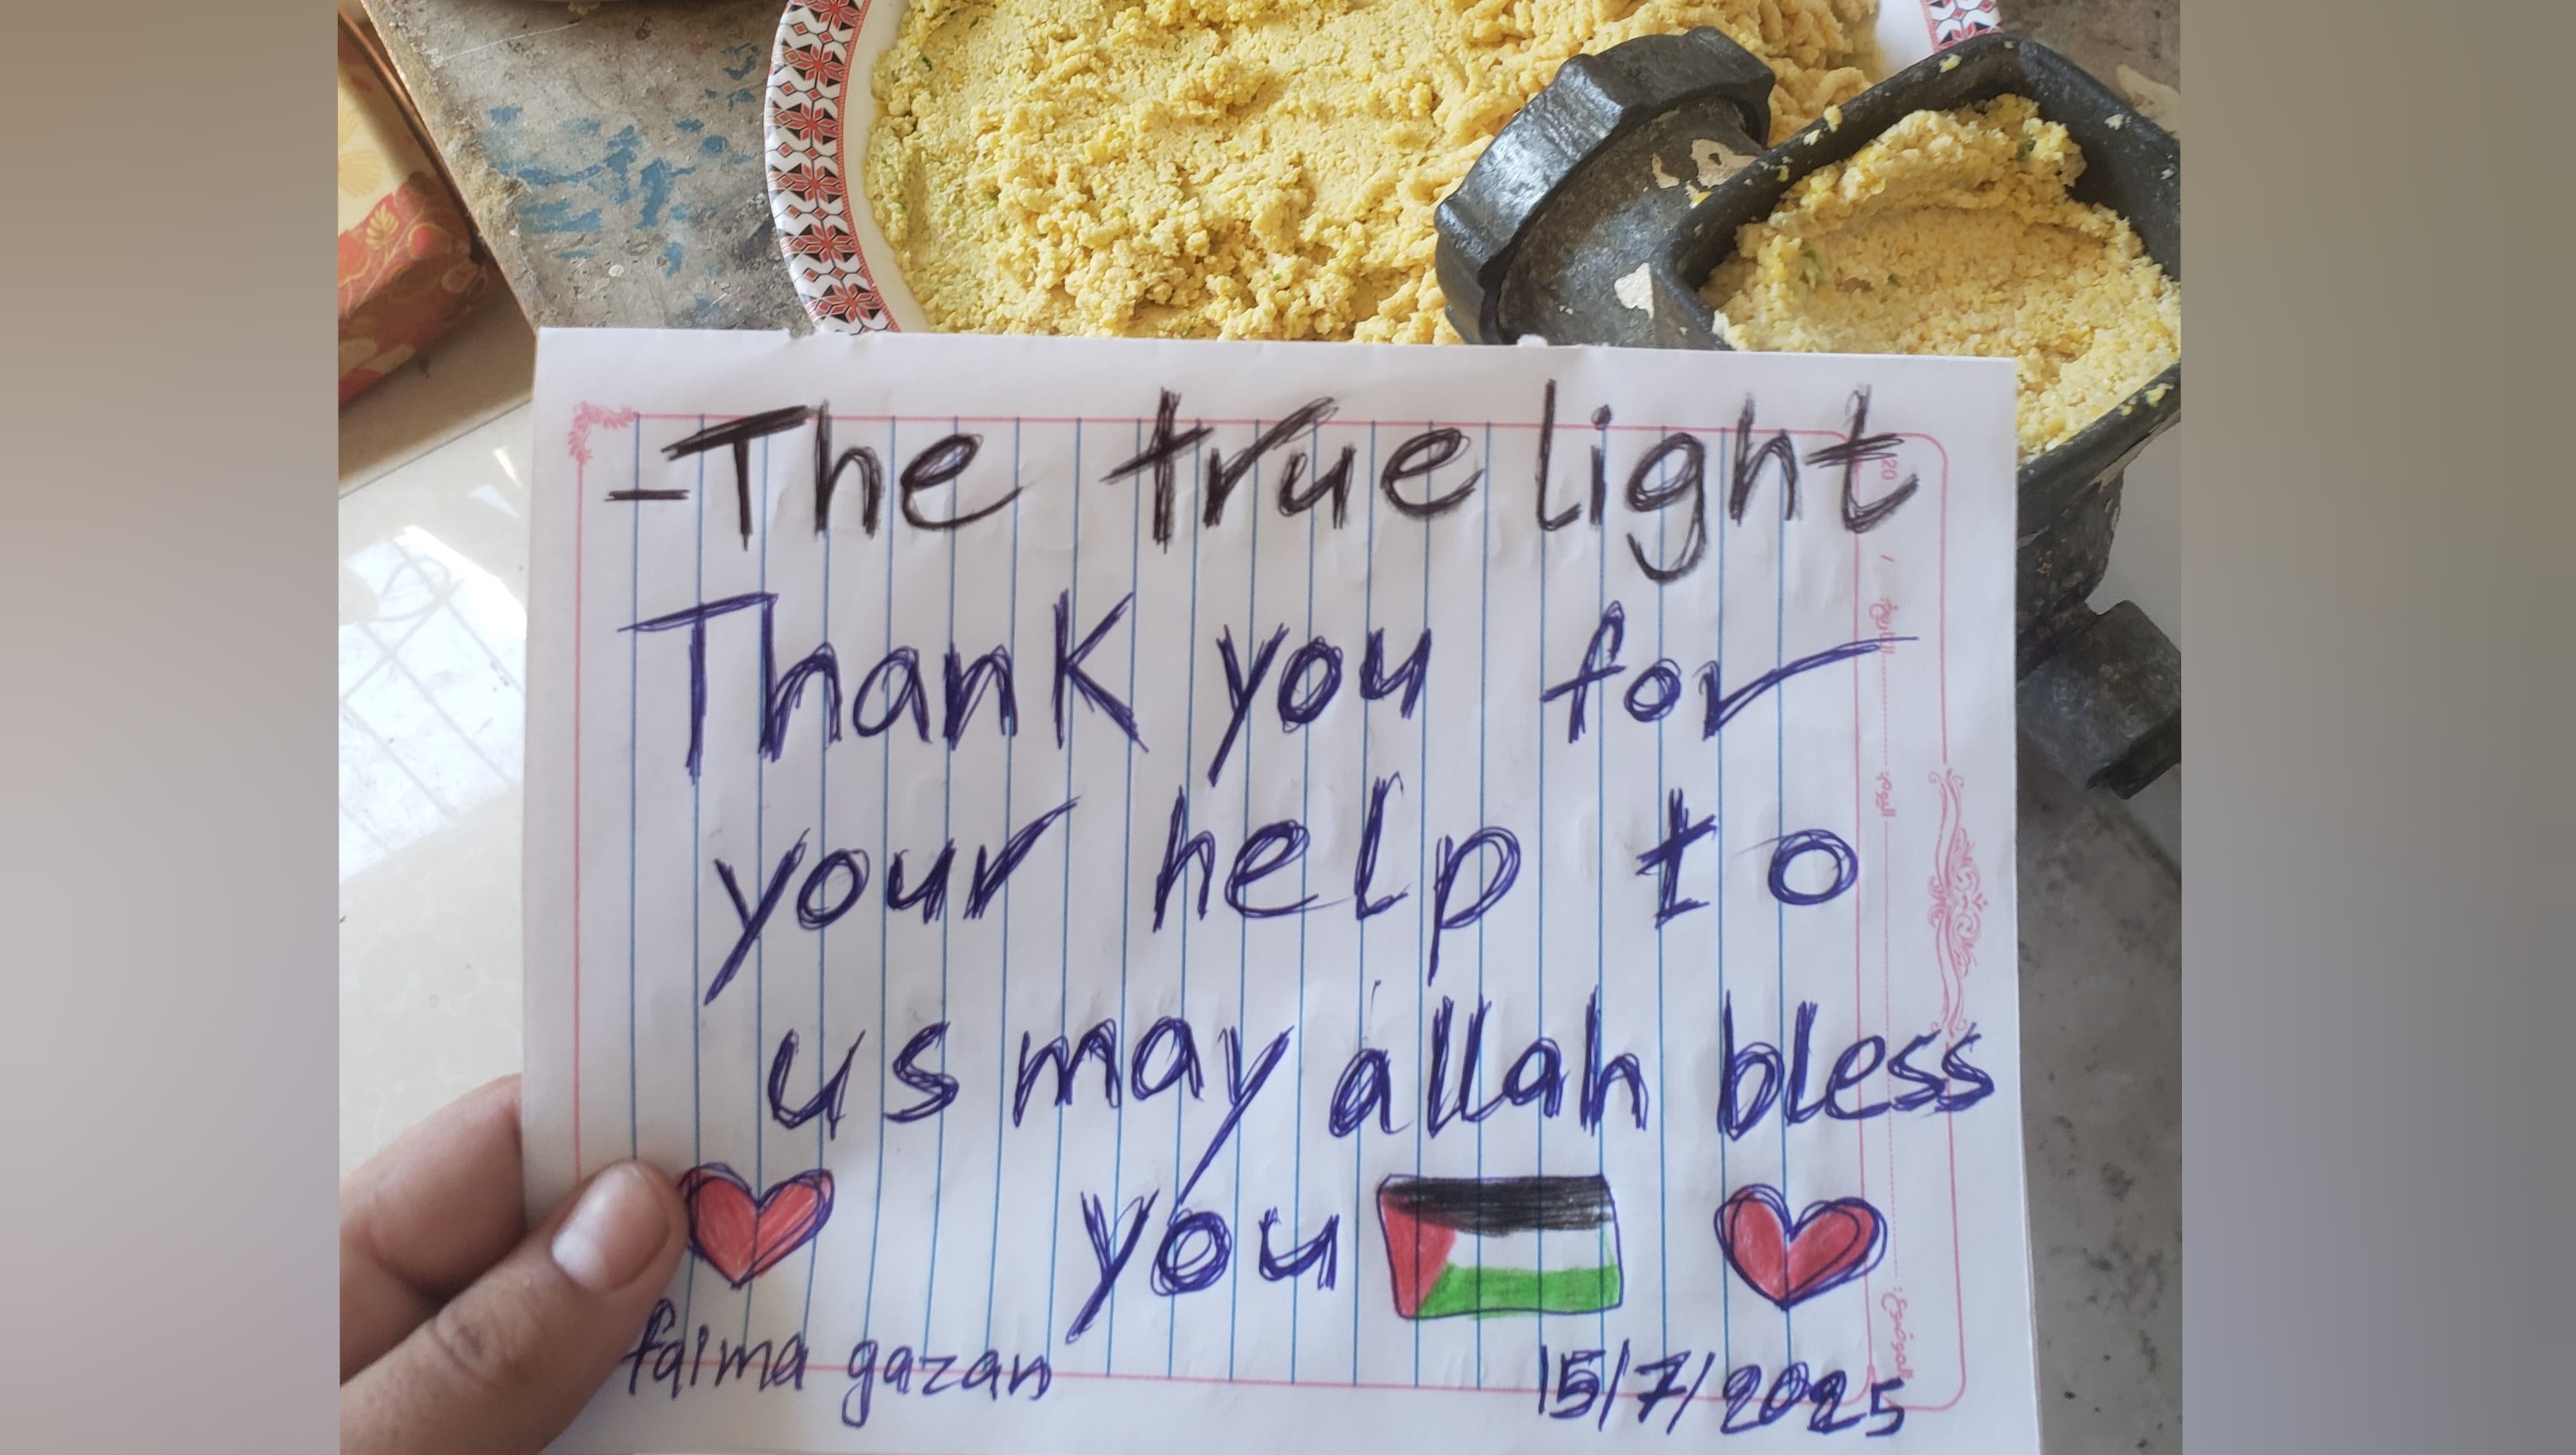 -The true light
Thank you for
your help to
us may allah bless
you
faima gazan
15/7/2025
20 /
التاريخ:
اليوم:
الموضوع: